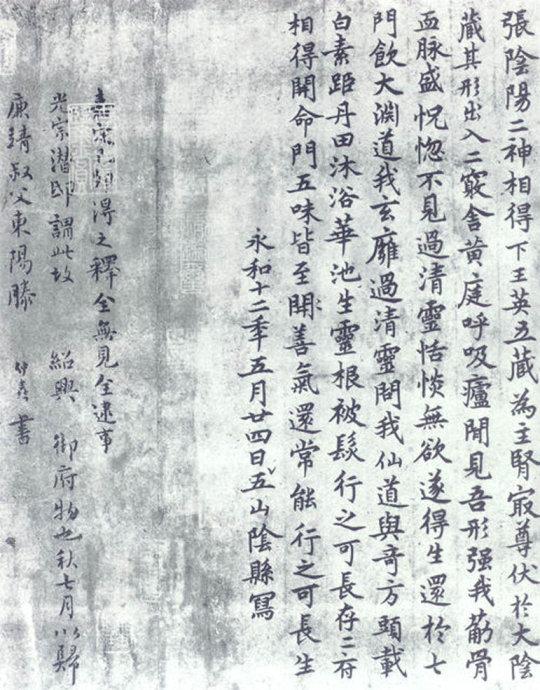 張陰陽二神相得下王英五藏為主腎冣尊伏於大陰
蔵其形出入二竅舍黄庭呼吸廬閒見吾形强我筋骨
血脉盛怳惚不見過清靈恬惔無欲遂得生還於七
門飲大淵道我玄廱過清靈問我仙道與奇方頭載
白素距丹田沐浴華池生靈根被髮行之可長存二府
相得開命門五味皆至開善氣還常能行之可長生
永和十二年五月廿四日五山陰縣寫
宗得之釋全無見全逮事
光宗潛邸謂此故 紹興 御府物也秋七月以歸
靖叔父東陽滕 書